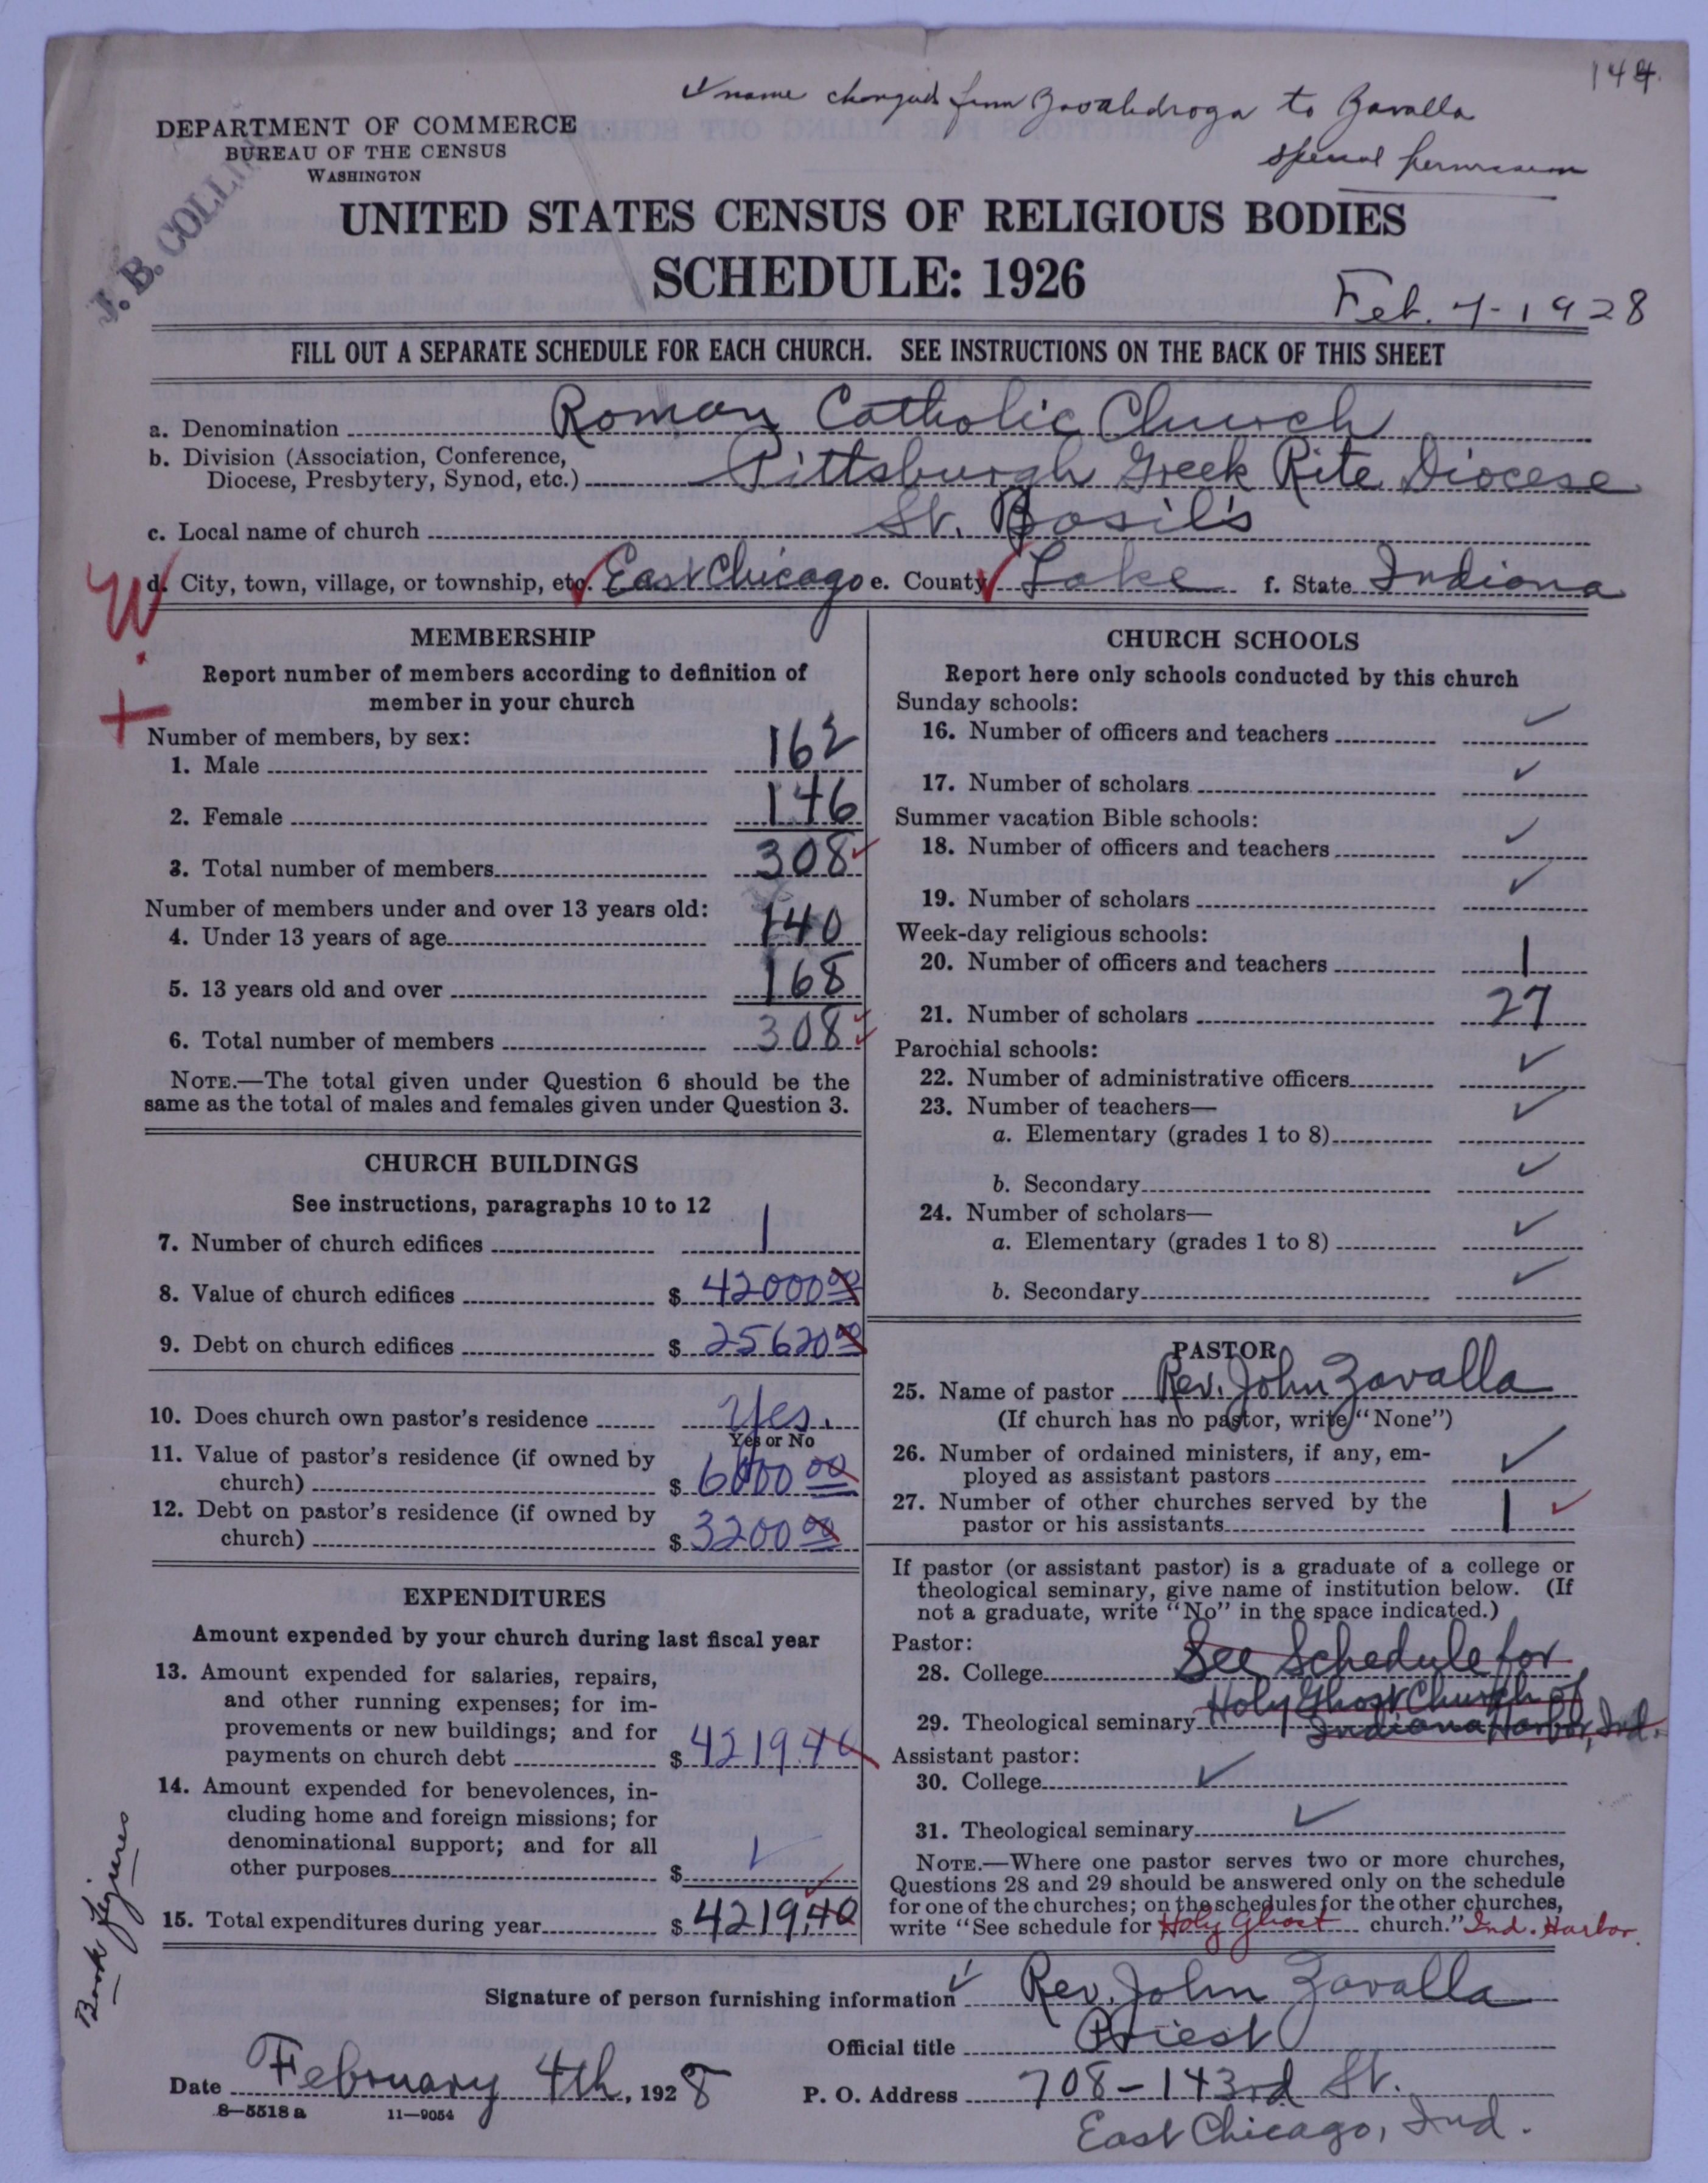 144.
✓ name changed from Zavalidroga to Zavalla
special permission
DEPARTMENT OF COMMERCE
BUREAU OF THE CENSUS
WASHINGTON
J. B. COLLIN
UNITED STATES CENSUS OF RELIGIOUS BODIES
SCHEDULE: 1926
Feb. 7-1928
FILL OUT A SEPARATE SCHEDULE FOR EACH CHURCH. SEE INSTRUCTIONS ON THE BACK OF THIS SHEET
a. Denomination Roman Catholic Church
b. Division (Association, Conference,
Diocese, Presbytery, Synod, etc.) Pittsburgh Greek Rite Diocese
c. Local name of church St. Basil's
d. City, town, village, or township, etc. East Chicago e. County Lake f. State Indiana
W.
+
MEMBERSHIP
Report number of members according to definition of
member in your church
Number of members, by sex:
1. Male 162
2. Female 146
3. Total number of members 308 ✓
Number of members under and over 13 years old:
4. Under 13 years of age 140
5. 13 years old and over 168
6. Total number of members 308 ✓
NOTE.—The total given under Question 6 should be the
same as the total of males and females given under Question 3.
CHURCH BUILDINGS
See instructions, paragraphs 10 to 12
7. Number of church edifices 1
8. Value of church edifices $ 42000 00
9. Debt on church edifices $ 25620 00
10. Does church own pastor's residence Yes.
Yes or No
11. Value of pastor's residence (if owned by
church) $ 6000 00
12. Debt on pastor's residence (if owned by
church) $ 3200 00
EXPENDITURES
Amount expended by your church during last fiscal year
13. Amount expended for salaries, repairs,
and other running expenses; for im-
provements or new buildings; and for
payments on church debt $ 4219.40
14. Amount expended for benevolences, in-
cluding home and foreign missions; for
denominational support; and for all
other purposes $ ✓
15. Total expenditures during year $ 4219,40
Book figures
CHURCH SCHOOLS
Report here only schools conducted by this church
Sunday schools:
16. Number of officers and teachers ✓
17. Number of scholars ✓
Summer vacation Bible schools:
18. Number of officers and teachers ✓
19. Number of scholars ✓
Week-day religious schools:
20. Number of officers and teachers 1
21. Number of scholars 27
Parochial schools:
22. Number of administrative officers ✓
23. Number of teachers—
a. Elementary (grades 1 to 8) ✓
b. Secondary ✓
24. Number of scholars—
a. Elementary (grades 1 to 8) ✓
b. Secondary ✓
PASTOR
25. Name of pastor Rev. John Zavalla
(If church has no pastor, write "None")
26. Number of ordained ministers, if any, em-
ployed as assistant pastors ✓
27. Number of other churches served by the
pastor or his assistants 1 ✓
If pastor (or assistant pastor) is a graduate of a college or
theological seminary, give name of institution below. (If
not a graduate, write "No" in the space indicated.)
Pastor:
28. College See Schedule for
29. Theological seminary Holy Ghost Church of
Indiana Harbor, Ind.
Assistant pastor:
30. College ✓
31. Theological seminary ✓
NOTE.—Where one pastor serves two or more churches,
Questions 28 and 29 should be answered only on the schedule
for one of the churches; on the schedules for the other churches,
write "See schedule for Holy Ghost church." Ind. Harbor.
Signature of person furnishing information ✓ Rev. John Zavalla
Official title Priest
Date February 4th, 1928 P. O. Address 708-143rd St.
8—5518 a 11—9054
East Chicago, Ind.